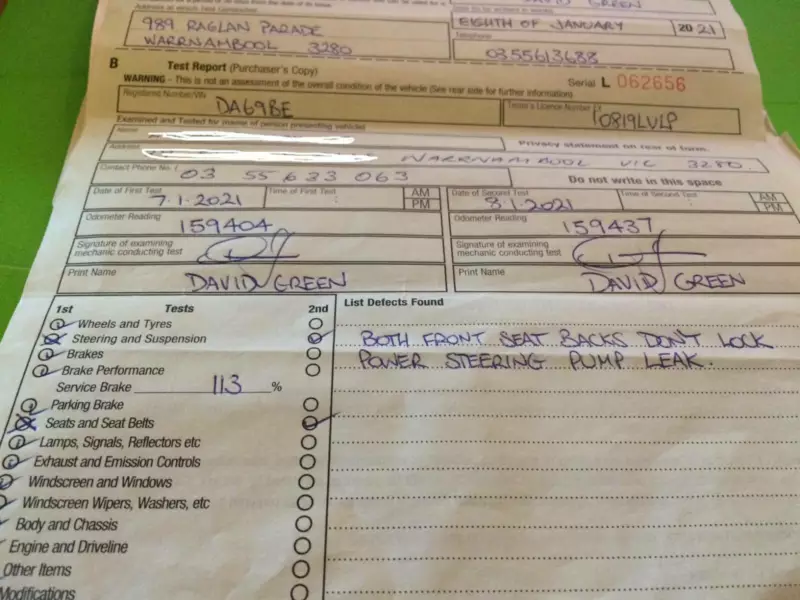 Address at which Test Conducted
989 RAGLAN PARADE
WARRNAMBOOL 3280
DAVID GREEN
EIGHTH OF JANUARY 2021
Telephone
0355613688
B Test Report (Purchaser's Copy)
WARNING - This is not an assessment of the overall condition of the vehicle (See rear side for further information)
Serial L 062656
Registered Number/VIN DA69BE
Tester's Licence Number 0819LVLP
Examined and Tested for (name of person presenting vehicle)
Name
Privacy statement on rear of form.
Address WARRNAMBOOL VIC 3280
Contact Phone No. 03 55 623 063
Do not write in this space
Date of First Test 7.1.2021
Time of First Test : AM PM
Date of Second Test 8.1.2021
Time of Second Test : AM PM
Odometer Reading 159404
Odometer Reading 159437
Signature of examining mechanic conducting test
Signature of examining mechanic conducting test
Print Name DAVID GREEN
Print Name DAVID GREEN
1st Tests 2nd
List Defects Found
Wheels and Tyres
Steering and Suspension
BOTH FRONT SEAT BACKS DON'T LOCK
Brakes
POWER STEERING PUMP LEAK.
Brake Performance
Service Brake 113 %
Parking Brake
Seats and Seat Belts
Lamps, Signals, Reflectors etc
Exhaust and Emission Controls
Windscreen and Windows
Windscreen Wipers, Washers, etc
Body and Chassis
Engine and Driveline
Other Items
Modifications